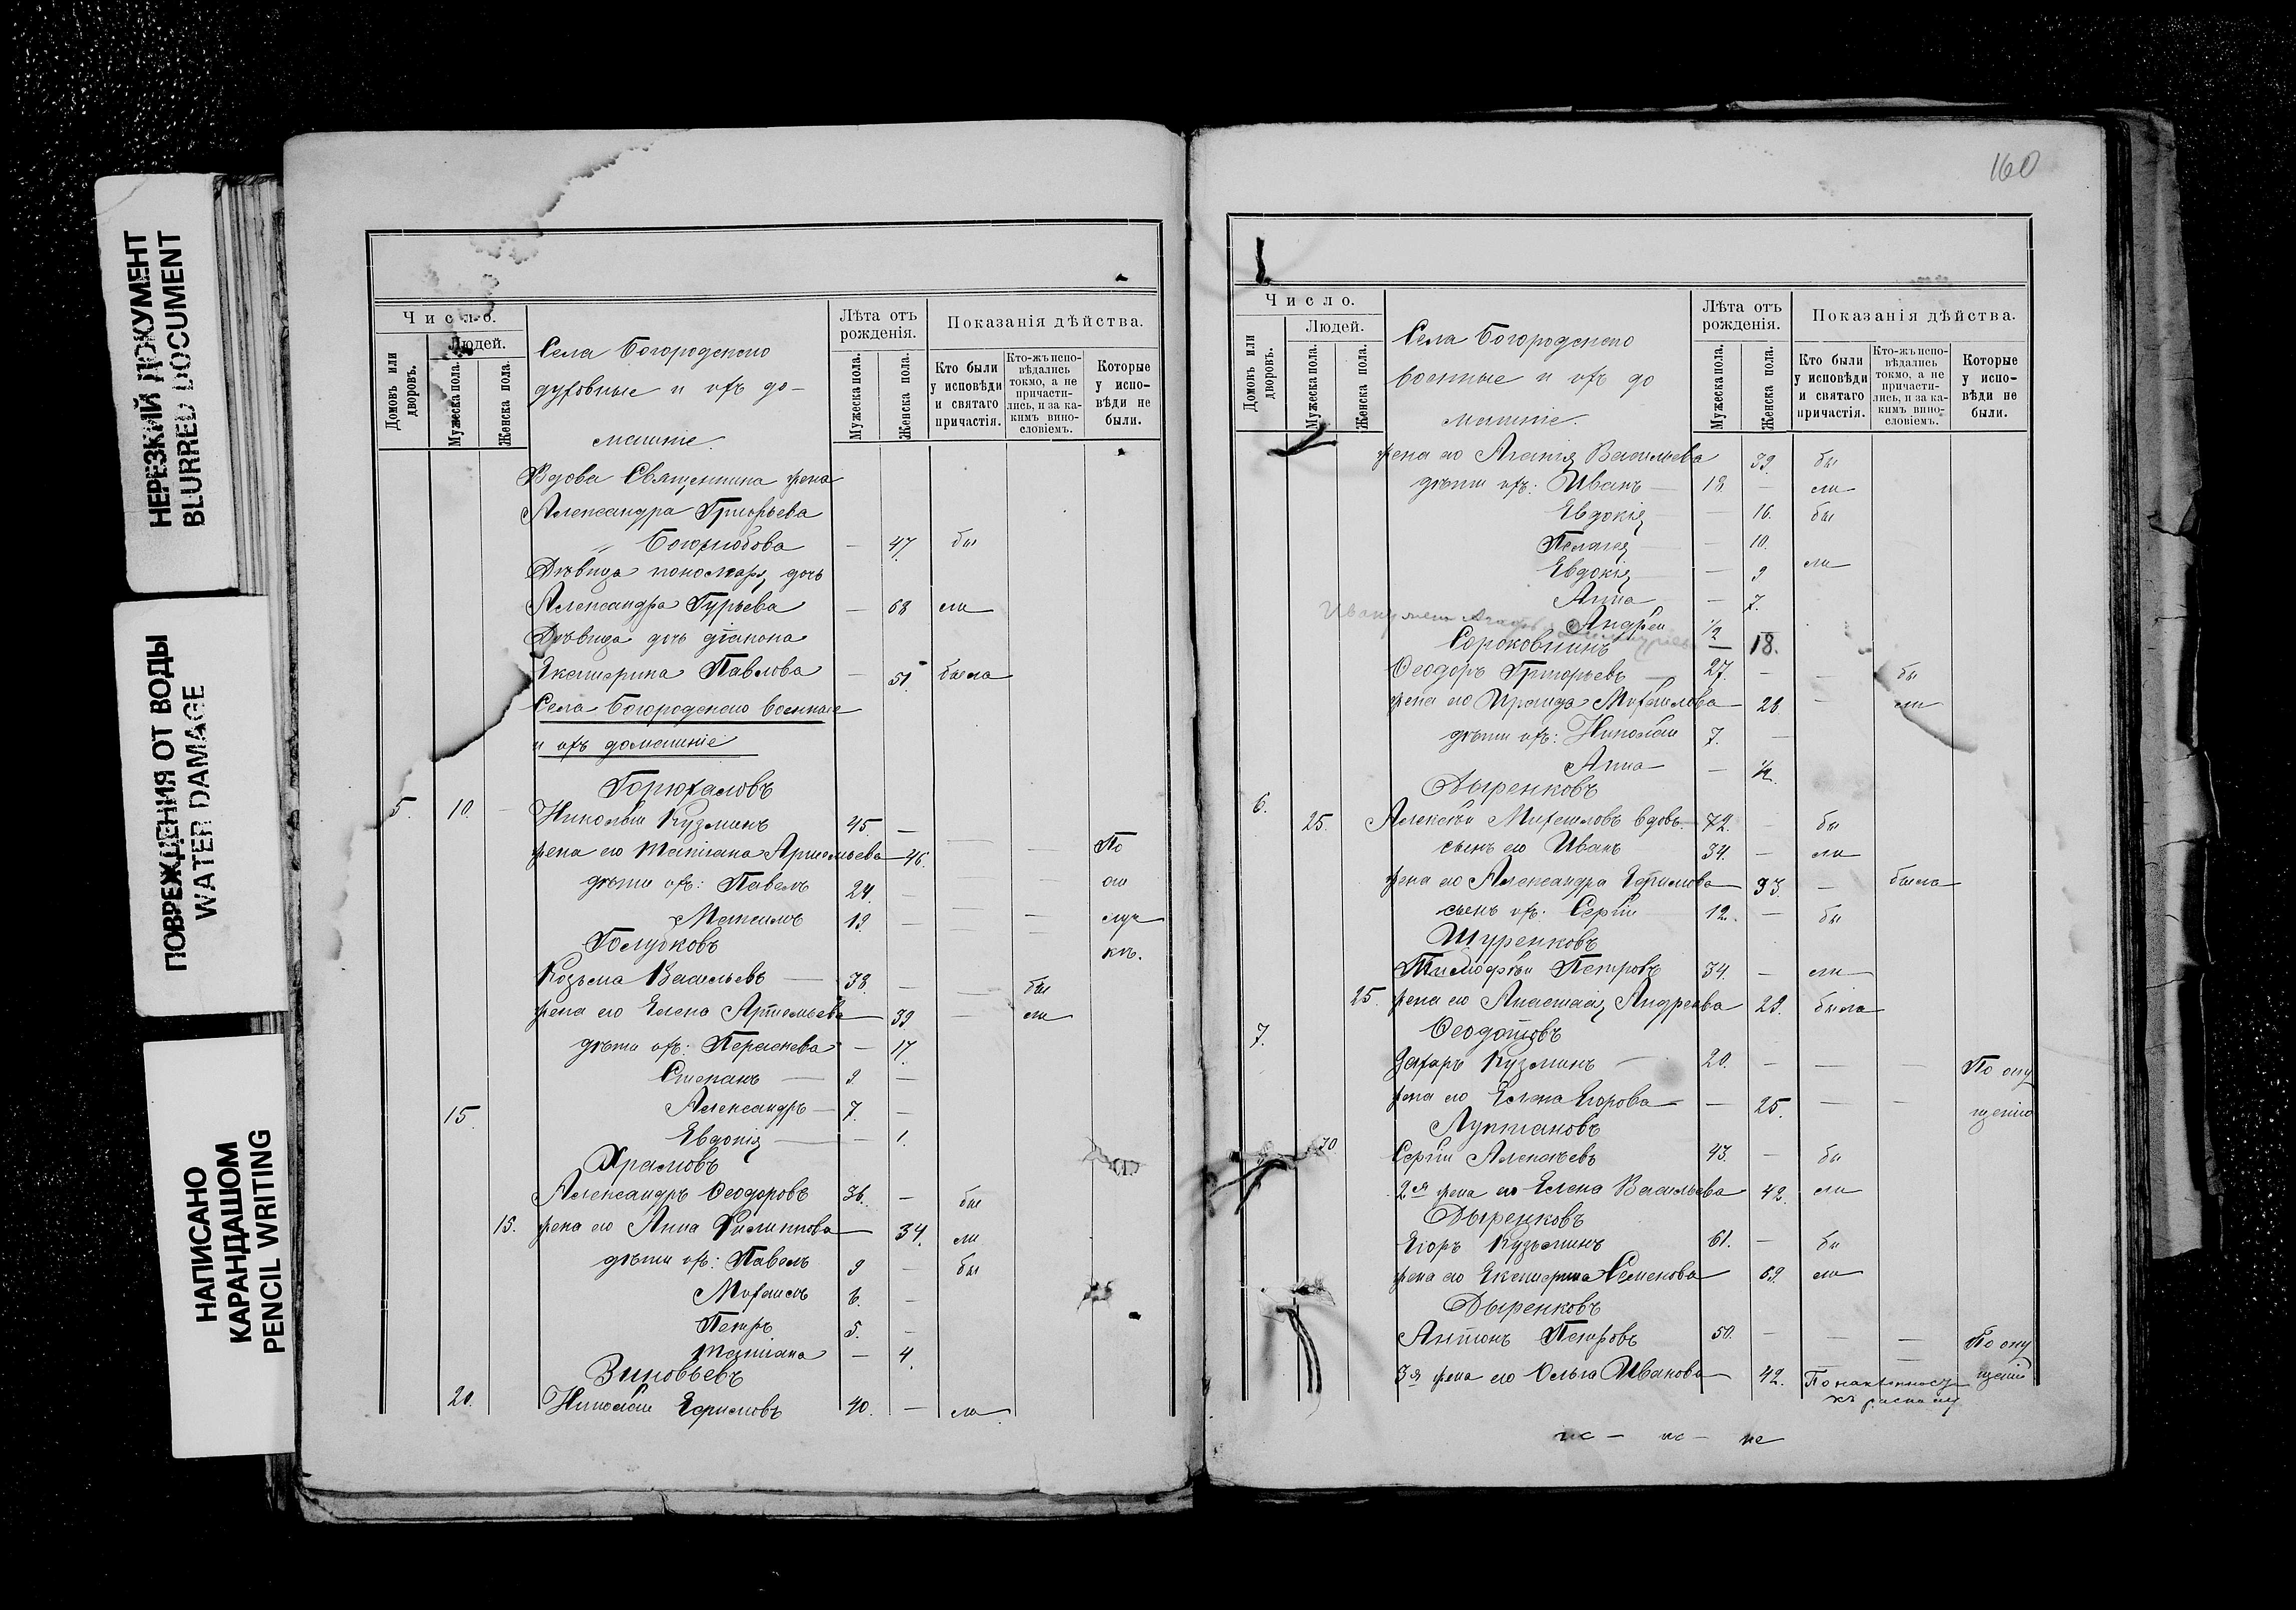 НЕРЕЗКИЙ ДОКУМЕНТ
BLURRED DOCUMENT
ПОВРЕЖДЕНИЯ ОТ ВОДЫ
WATER DAMAGE
НАПИСАНО
КАРАНДАШОМ
PENCIL WRITING
Число.
Людей.
Домовъ или дворовъ.
Мужеска пола.
Женска пола.
Села Богородского
духовные и ихъ до-
машніе
Лѣта отъ рожденія.
Мужеска пола.
Женска пола.
Показанія дѣйства.
Кто были у исповѣди и святаго причастія.
Кто-жъ исповѣдались токмо, а не причастились, и за какимъ винословіемъ.
Которые у исповѣди не были.
Вдова Священника жена
Александра Григорьева
Боголюбова — 47. бы
Дѣвица пономаря дочь
Александра Гурьева — 68 ла
Дѣвица дочь діакона
Екатерина Павлова — 51. была
Села Богородского военные
и ихъ домашніе
5. 10.
Николай Кузминъ 45. —
жена его Татіана Артемьева 46. — По
дѣти ихъ: Павелъ 24.
Максимъ 19. — — — служ
Голубковъ
Козьма Васильевъ — 38. — — бы
жена его Елена Артемьева 39. — ли
дѣти ихъ: — 17.
Степанъ — 9. —
15. Александръ — 7. —
Евдокія — — 1.
Храмовъ
Александръ Ѳеодоровъ 36. — бы
15. жена его Анна Филиппова 34. ли
дѣти ихъ: Павелъ 9 — бы
Михаилъ 6. —
Петръ 5. —
Татіана — 4.
Зиновьевъ
20. Николай Ефимовъ 40. — ли
160
Число.
Людей.
Домовъ или дворовъ.
Мужеска пола.
Женска пола.
Села Богородского
военные и ихъ до
машніе.
Лѣта отъ рожденія.
Мужеска пола.
Женска пола.
Показанія дѣйства.
Кто были у исповѣди и святаго причастія.
Кто-жъ исповѣдались токмо, а не причастились, и за какимъ винословіемъ.
Которые у исповѣди не были.
жена его Агапія Васильева 39. бы
дѣти ихъ: Иванъ — 18. — ли
Евдокія — 16. бы
Пелагея — 10.
Евдокія — 9 ли
Анна — 7.
Андрей 1/2
— 18.
Ѳеодоръ Григорьевъ — 27. — — бы
жена его Ираида Михаилова — 28. — ли
дѣти ихъ: Николай 7. —
Анна — 1/2.
6. Дыренковъ
25. Алексѣй Михаиловъ вдовъ. 72. — бы
сынъ его Иванъ 34. — ли
жена его Александра Ефимова — 33. — была
сынъ ихъ: Сергій 12. — бы
Шуренковъ
Тимофей Петровъ 34. — ли
25. жена его Анастасія Андреева 29. была
7. Ѳеодотовъ
Захаръ Кузминъ — 28. — — — По опу
жена его Елена Егорова — 25. — — щенію
Луктановъ
30 Сергій Алексѣевъ 43. — бы
2ая жена его Елена Васильева 42. ли
Дыренковъ
Егоръ Кузьминъ 61. — бы
жена его Екатерина Семенова 69. ли
Дыренковъ
Антонъ Петровъ 50. — — — По опу
3я жена его Ольга Иванова 42. щенію
По наклонности
къ расколу